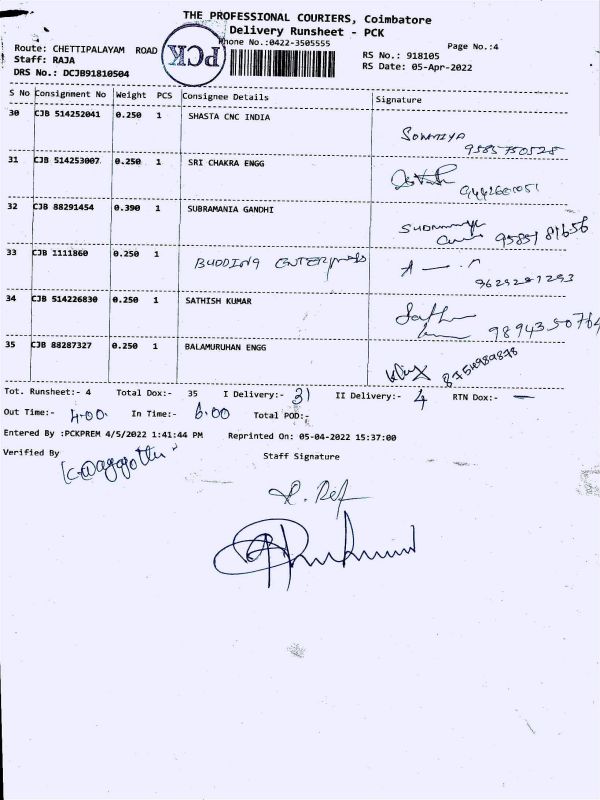 THE PROFESSIONAL COURIERS, Coimbatore
Delivery Runsheet - PCK
Phone No.:0422-3505555
Page No.:4
Route: CHETTIPALAYAM ROAD
PCK
RS No.: 918105
Staff: RAJA
RS Date: 05-Apr-2022
DRS No.: DCJB91810504
S No Consignment No Weight PCS Consignee Details Signature
30 CJB 514252041 0.250 1 SHASTA CNC INDIA
9585750528
31 CJB 514253007 0.250 1 SRI CHAKRA ENGG
32 CJB 88291454 0.390 1 SUBRAMANIA GANDHI
33 CJB 1111860 0.250 1 BUDDING ENTERPRISES
34 CJB 514226830 0.250 1 SATHISH KUMAR
35 CJB 88287327 0.250 1 BALAMURUHAN ENGG
Tot. Runsheet:- 4 Total Dox:- 35 I Delivery:- 31 II Delivery:- 4 RTN Dox:- —
Out Time:- 4.00. In Time:- 6.00 Total POD:-
Entered By :PCKPREM 4/5/2022 1:41:44 PM Reprinted On: 05-04-2022 15:37:00
Verified By Staff Signature